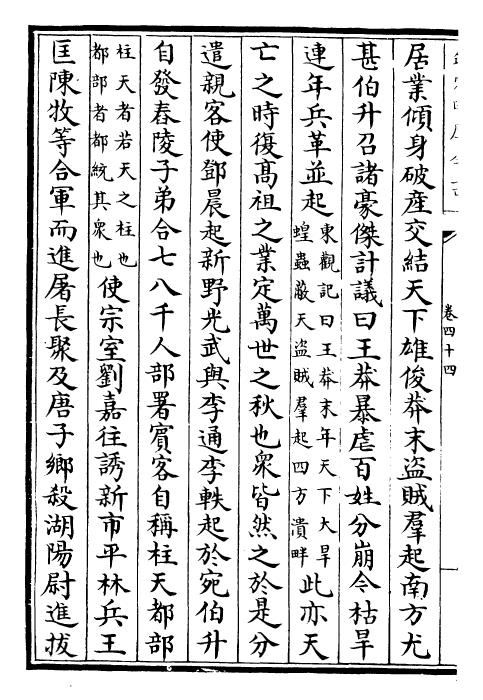 卷四十四
居業傾身破産交結天下雄俊莽末盜賊羣起南方尤
甚伯升召諸豪傑計議曰王莽暴虐百姓分崩今枯旱
連年兵革並起東觀記曰王莽末年天下大旱蝗蟲蔽天盜賊羣起四方潰畔此亦天
亡之時復髙祖之業定萬世之秋也衆皆然之於是分
遣親客使鄧晨起新野光武與李通李軼起於宛伯升
自發舂陵子弟合七八千人部署賓客自稱柱天都部
柱天者若天之柱也都部者都統其衆也使宗室劉嘉往誘新市平林兵王
匡陳牧等合軍而進屠長聚及唐子鄉殺湖陽尉進拔